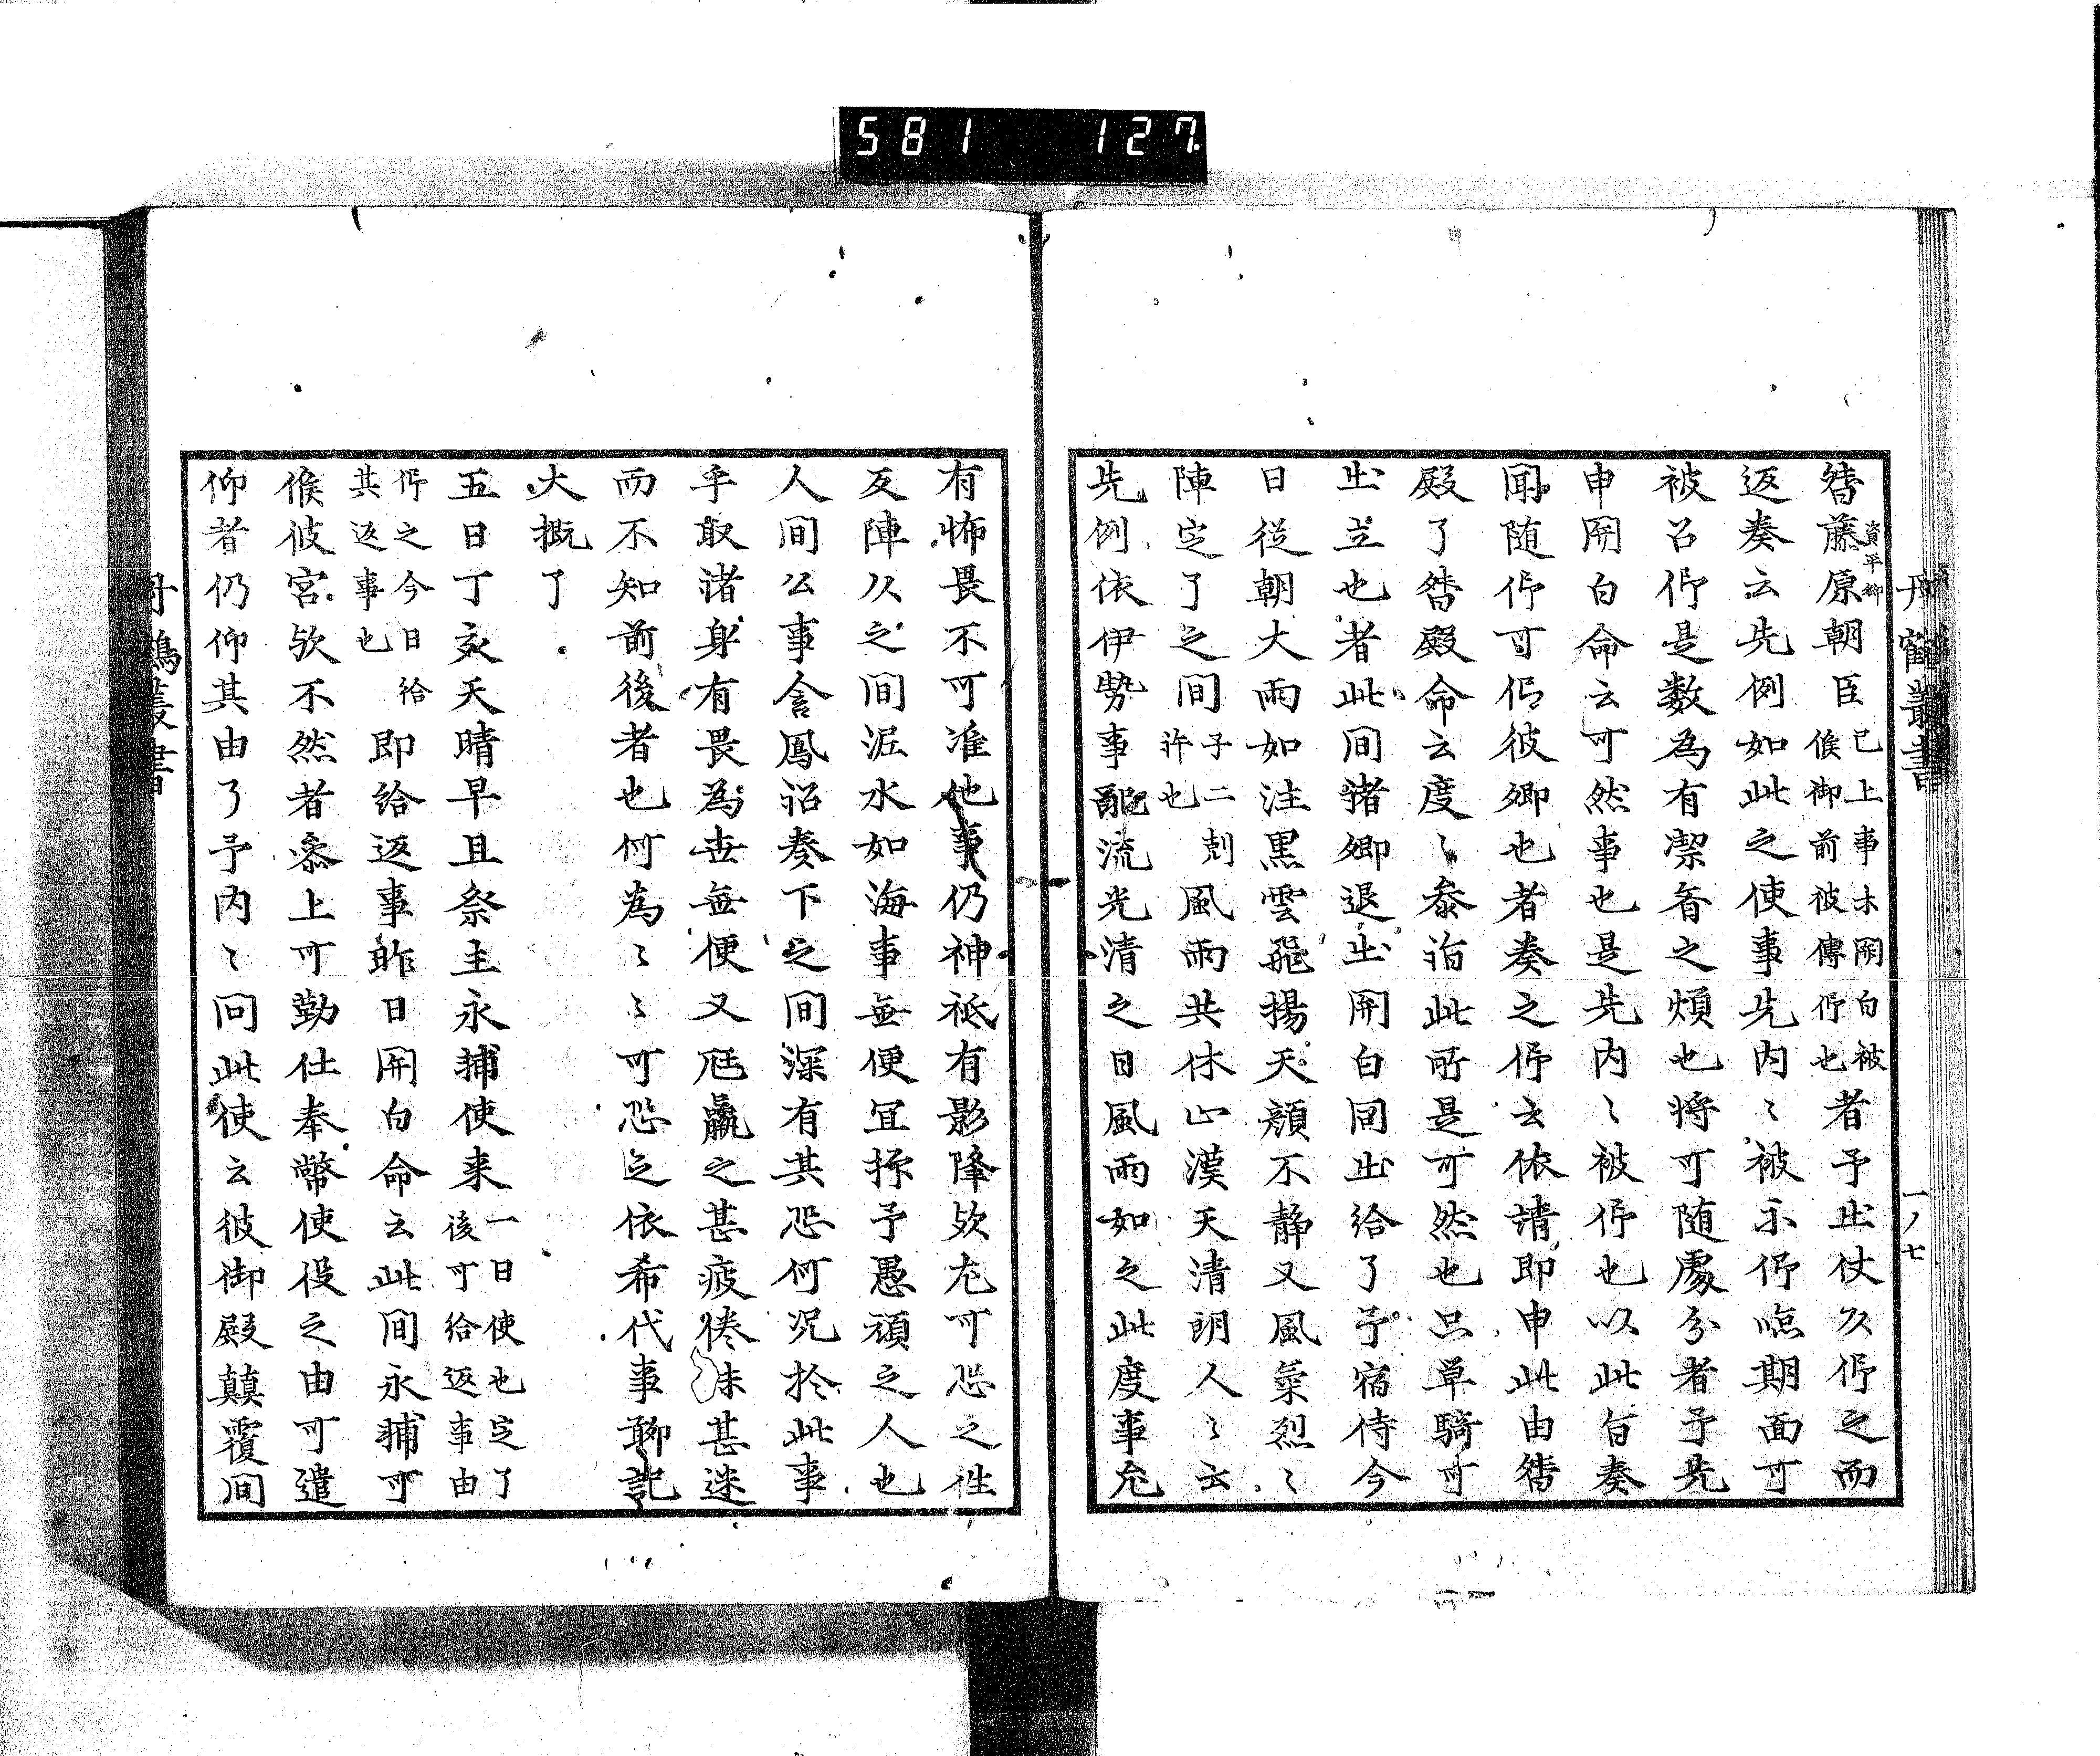 581 127
丹鶴叢書
一ノ七
督藤原朝臣資平卿已上事木関白被候御前被傳仰也者予出仗久仰之而
返奏云先例如此之使事先内〻被示仰臨期面可
被召仰是数為有潔斎之煩也将可随處分者予先
申関白命云可然事也是先内〻被仰也以此旨奏
聞随仰可仰彼卿也者奏之仰云依請即申此由督
殿了督殿命云度〻参詣此所是可然也只單騎可
出立也者此間諸卿退出関白同出給了予宿侍今
日從朝大雨如注黒雲飛揚天顔不静又風氣烈〻
陣定了之間子二剋許也風雨共休止漢天清朗人〻云
先例依伊勢事配流光清之日風雨如之此度事尤
有怖畏不可准他事仍神祇有影降欤尤可恐之徃
反陣久之間泥水如海事無便冝抑予愚頑之人也
人間公事含鳳詔奏下之間深有其恐何况於此事
乎取諸身有畏為世無便又尫羸之甚疲倦未甚迷
而不知前後者也何為〻〻可恐之依希代事聊記
大概了
五日丁亥天晴早旦祭主永輔使来一日使也定了後可給返事由
仰之今日給其返事也即給返事昨日関白命云此間永輔可
候彼宮欤不然者参上可勤仕奉幣使役之由可遣
仰者仍仰其由了予内〻同此使云彼御殿顛覆間
丹鶴叢書